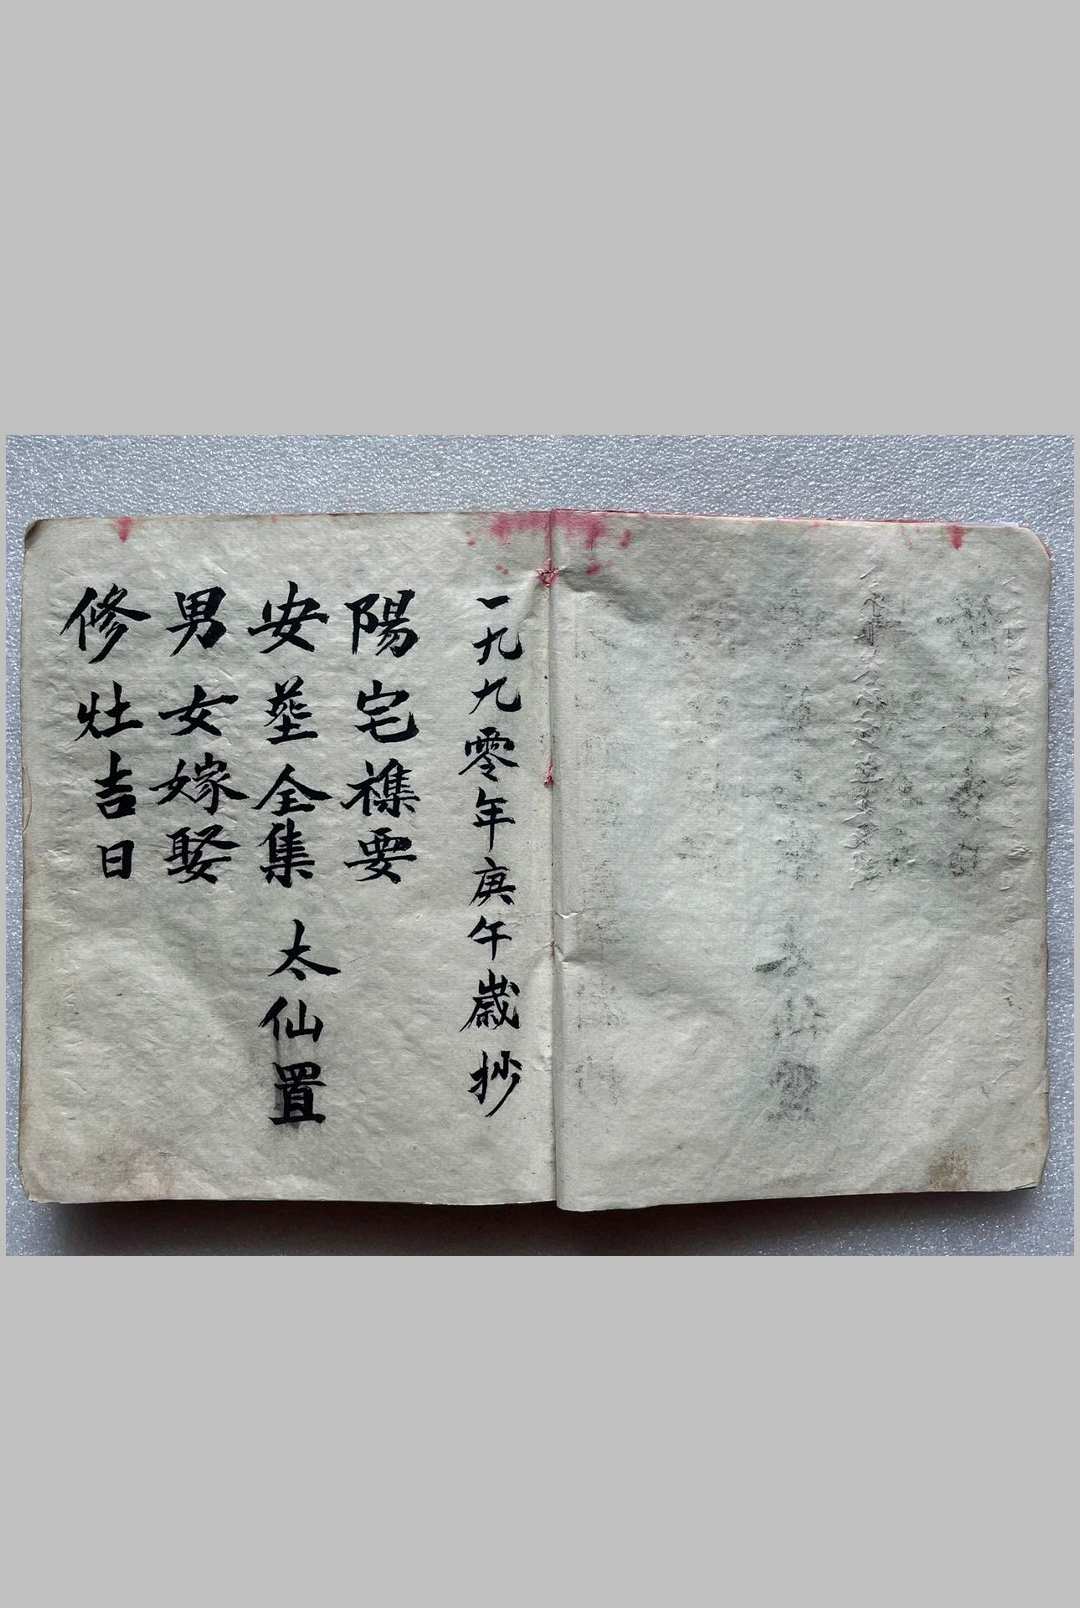 一九九零年庚午歲抄
陽宅襍要
安葬全集 太仙置
男女嫁娶
修灶吉日